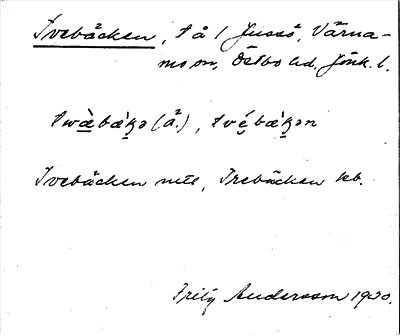 Tvebäcken, t å 1 Jussö, Värna-
mo sn, Östbo hd. Jönk. l.
twæ̀bæ'ꞣə (ä².), tvé̜bæ'ꞣən
Tvebäcken nte, Trebäcken kb.
Fritz Andersson 1930.